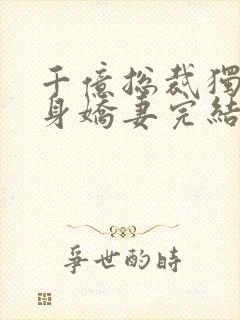 千億總裁獨
身嬌妻完結
爭世的時